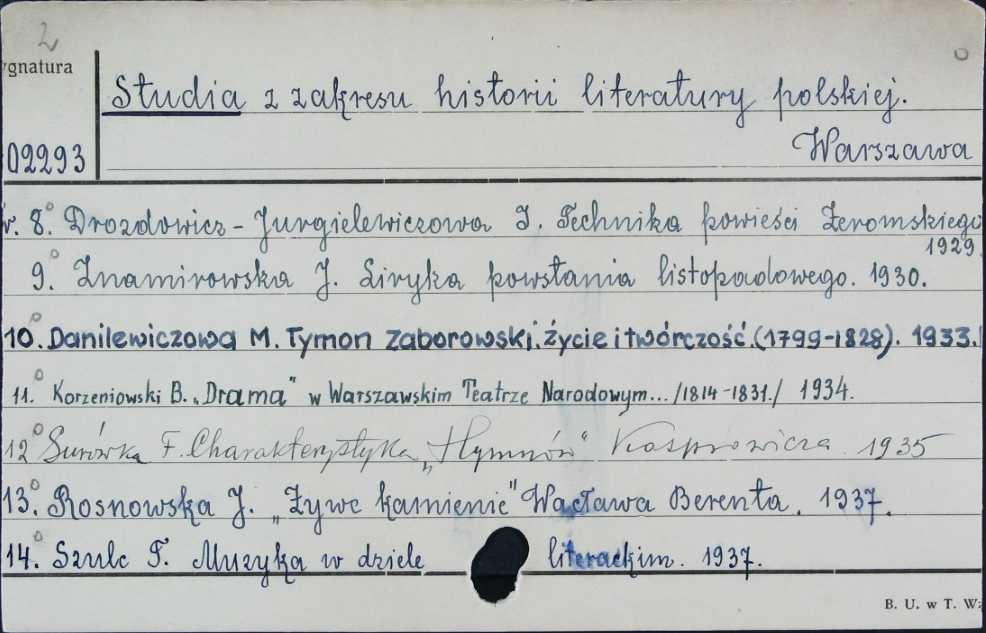 2
ygnatura
Studia z zakresu historii literatury polskiej.
02293
Warszawa
r. 8.° Drozdowicz-Jurgielewiczowa I. Technika powieści Żeromskiego
1929.
9.° Znamirowska J. Liryka powstania listopadowego. 1930.
10.° Danilewiczowa M. Tymon Zaborowski. życie i twórczość. (1799-1828). 1933.
11.° Korzeniowski B. „Drama" w Warszawskim Teatrze Narodowym... /1814-1831./ 1934.
12° Surówka F. Charakterystyka „Hymnów" Kasprowicza. 1935
13.° Rosnowska J. „Żywe kamienie" Wacława Berenta. 1937.
14.° Szulc F. Muzyka w dziele literackim. 1937.
B. U. w T. W